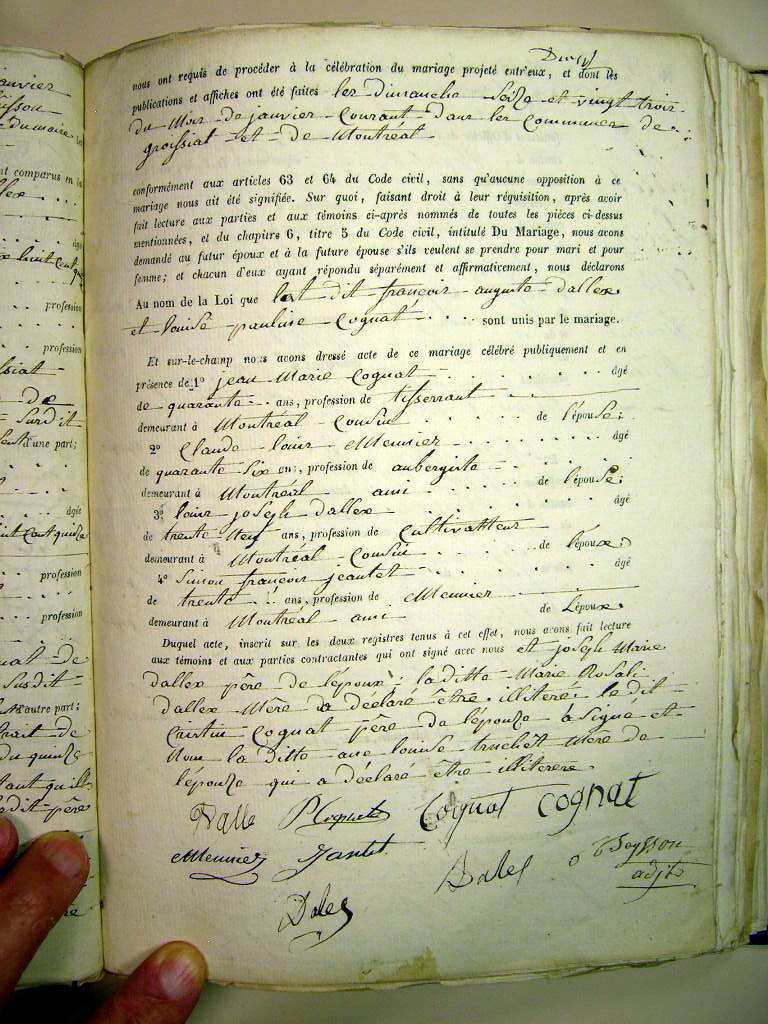 anvier
du maire
nt comparus
âgé
profession
profession
ssiat
de
Surdit
d'une part;
âgé
profession
profession
nat de
Susdit
d'autre part:
trait de
du quinze
tant quill
dit père
nous ont requis de procéder à la célébration du mariage projeté entr'eux, et dont les
publications et affiches ont été faites les dimanche Seize et vingt trois
du Mois de janvier Courant dans les Communes de
groissiat et de Montréal
conformément aux articles 63 et 64 du Code civil, sans qu'aucune opposition à ce
mariage nous ait été signifiée. Sur quoi, faisant droit à leur réquisition, après avoir
fait lecture aux parties et aux témoins ci-après nommés de toutes les pièces ci-dessus
mentionnées, et du chapitre 6, titre 5 du Code civil, intitulé Du Mariage, nous avons
demandé au futur époux et à la future épouse s'ils veulent se prendre pour mari et pour
femme; et chacun d'eux ayant répondu séparément et affirmativement, nous déclarons
Au nom de la Loi que dit françois auguste dallex
et louise pauline Cognat . . . . sont unis par le mariage.
Et sur-le-champ nous avons dressé acte de ce mariage célébré publiquement et en
présence de 1º jean Marie Cognat . . . . . . . . âgé
de quarante . . ans, profession de tisserrant
demeurant à Montréal Cousin . . . . . . de l'épouse;
2º Claude louis Meunier . . . . . . . . âgé
de quarante Six ans, profession de aubergiste
demeurant à Montréal ami . . . . . . de l'épouse;
3º louis joseph dallex . . . . . . . . âgé
de trente neuf ans, profession de Cultivatteur
demeurant à Montréal Cousin . . . . . . de l'époux;
4º Simon françois jeantet . . . . . . . . âgé
de trente . . ans, profession de Meunier
demeurant à Montréal ami . . . . . . de L'époux.
Duquel acte, inscrit sur les deux registres tenus à cet effet, nous avons fait lecture
aux témoins et aux parties contractantes qui ont signé avec nous et joseph Marie
dallex père de l'époux; la ditte Marie Rosali
dallex Mère a déclaré être illitere; le dit
Cristin Cognat père de l'épouze à Signé et
Non la ditte ane louise truchet Mère de
l'épouze qui a déclaré être illiterere
Dalle Cognat cognat
Meunier Jantet
Dalex
adjt
Dalex